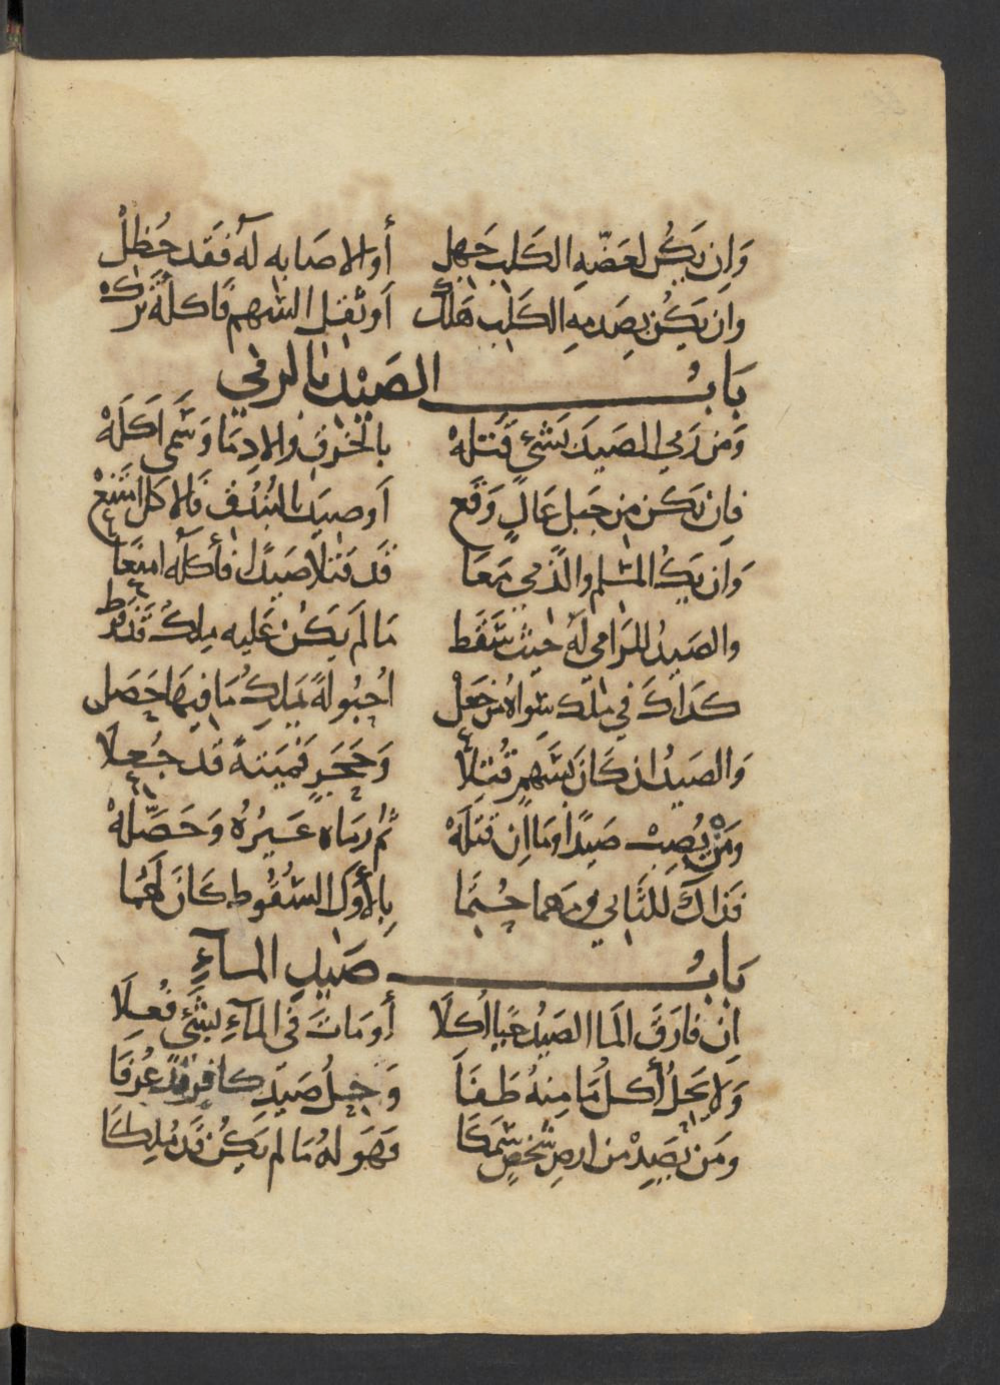 وَاِن يَكُن لعَضّهِ الكَلب جَهِل أو الاصَابه لَهُ فَقَد حُظِلْ
وان يَكُن بِصَدمهِ الكَلب هَلَك اَو ثقل السّهم فَاكلهُ تَركه
بَابُ الصَيْدِ بالرمي
وَمن رَمي الصَيدَ بَشئ قَتله بالخَرق والادِمَا وَسَمى اَكَلَهْ
فاِن يَكن مِن جَبل عَالٍ وَقَع اَو صِيدَ بالبُندُق فالاكل امْتَنَعْ
وَان يَكُ المسْلم والذّمي مَعَا قَد قتلا صَيدًا فأكله امنَعَا
والصَيدُ للرَامي لَهُ حَيث سَقَط مَا لَم يَكُنْ عَليه مِلكُ قَد
كَذاكَ في مِلك سِوَاهُ مَن جَعَلْ اُحبُولةً يَملِكُ مَا فِيهَا حَصَل
وَالصَيدُ ان كَانَ بسَهمٍ قُتِلَا وَحَجَرٍ فَميَتةً قَد جُعِلَا
وَمَنْ يُصِبْ صَيدًا وَمَا اِن قَتَلَهْ ثُم رمَاه غَيرُهُ وَحَصَّلَهْ
فَذاكَ للثَّاني وَمَهما حُتِمَا بِالأوَل السُقُوط كَانَ لَهُمَا
بَابُ صَيدِ المَاءِ
اِن فارَقَ المَا الصَيدُ حَيا اُكلَا أو مَاتَ في المَاءِ لِشَئ فُعِلَا
وَلا يَحِلُ أكلُ مَا مِنهُ طَفَا وَحِلُ صَيدِ كافرٍ قَد عُرفَا
ومَن يَصِدْ مِن ارض شَخصٍ سَمَكَا فَهوَ لهُ مَا لم يَكُن قَد مُلِكَا